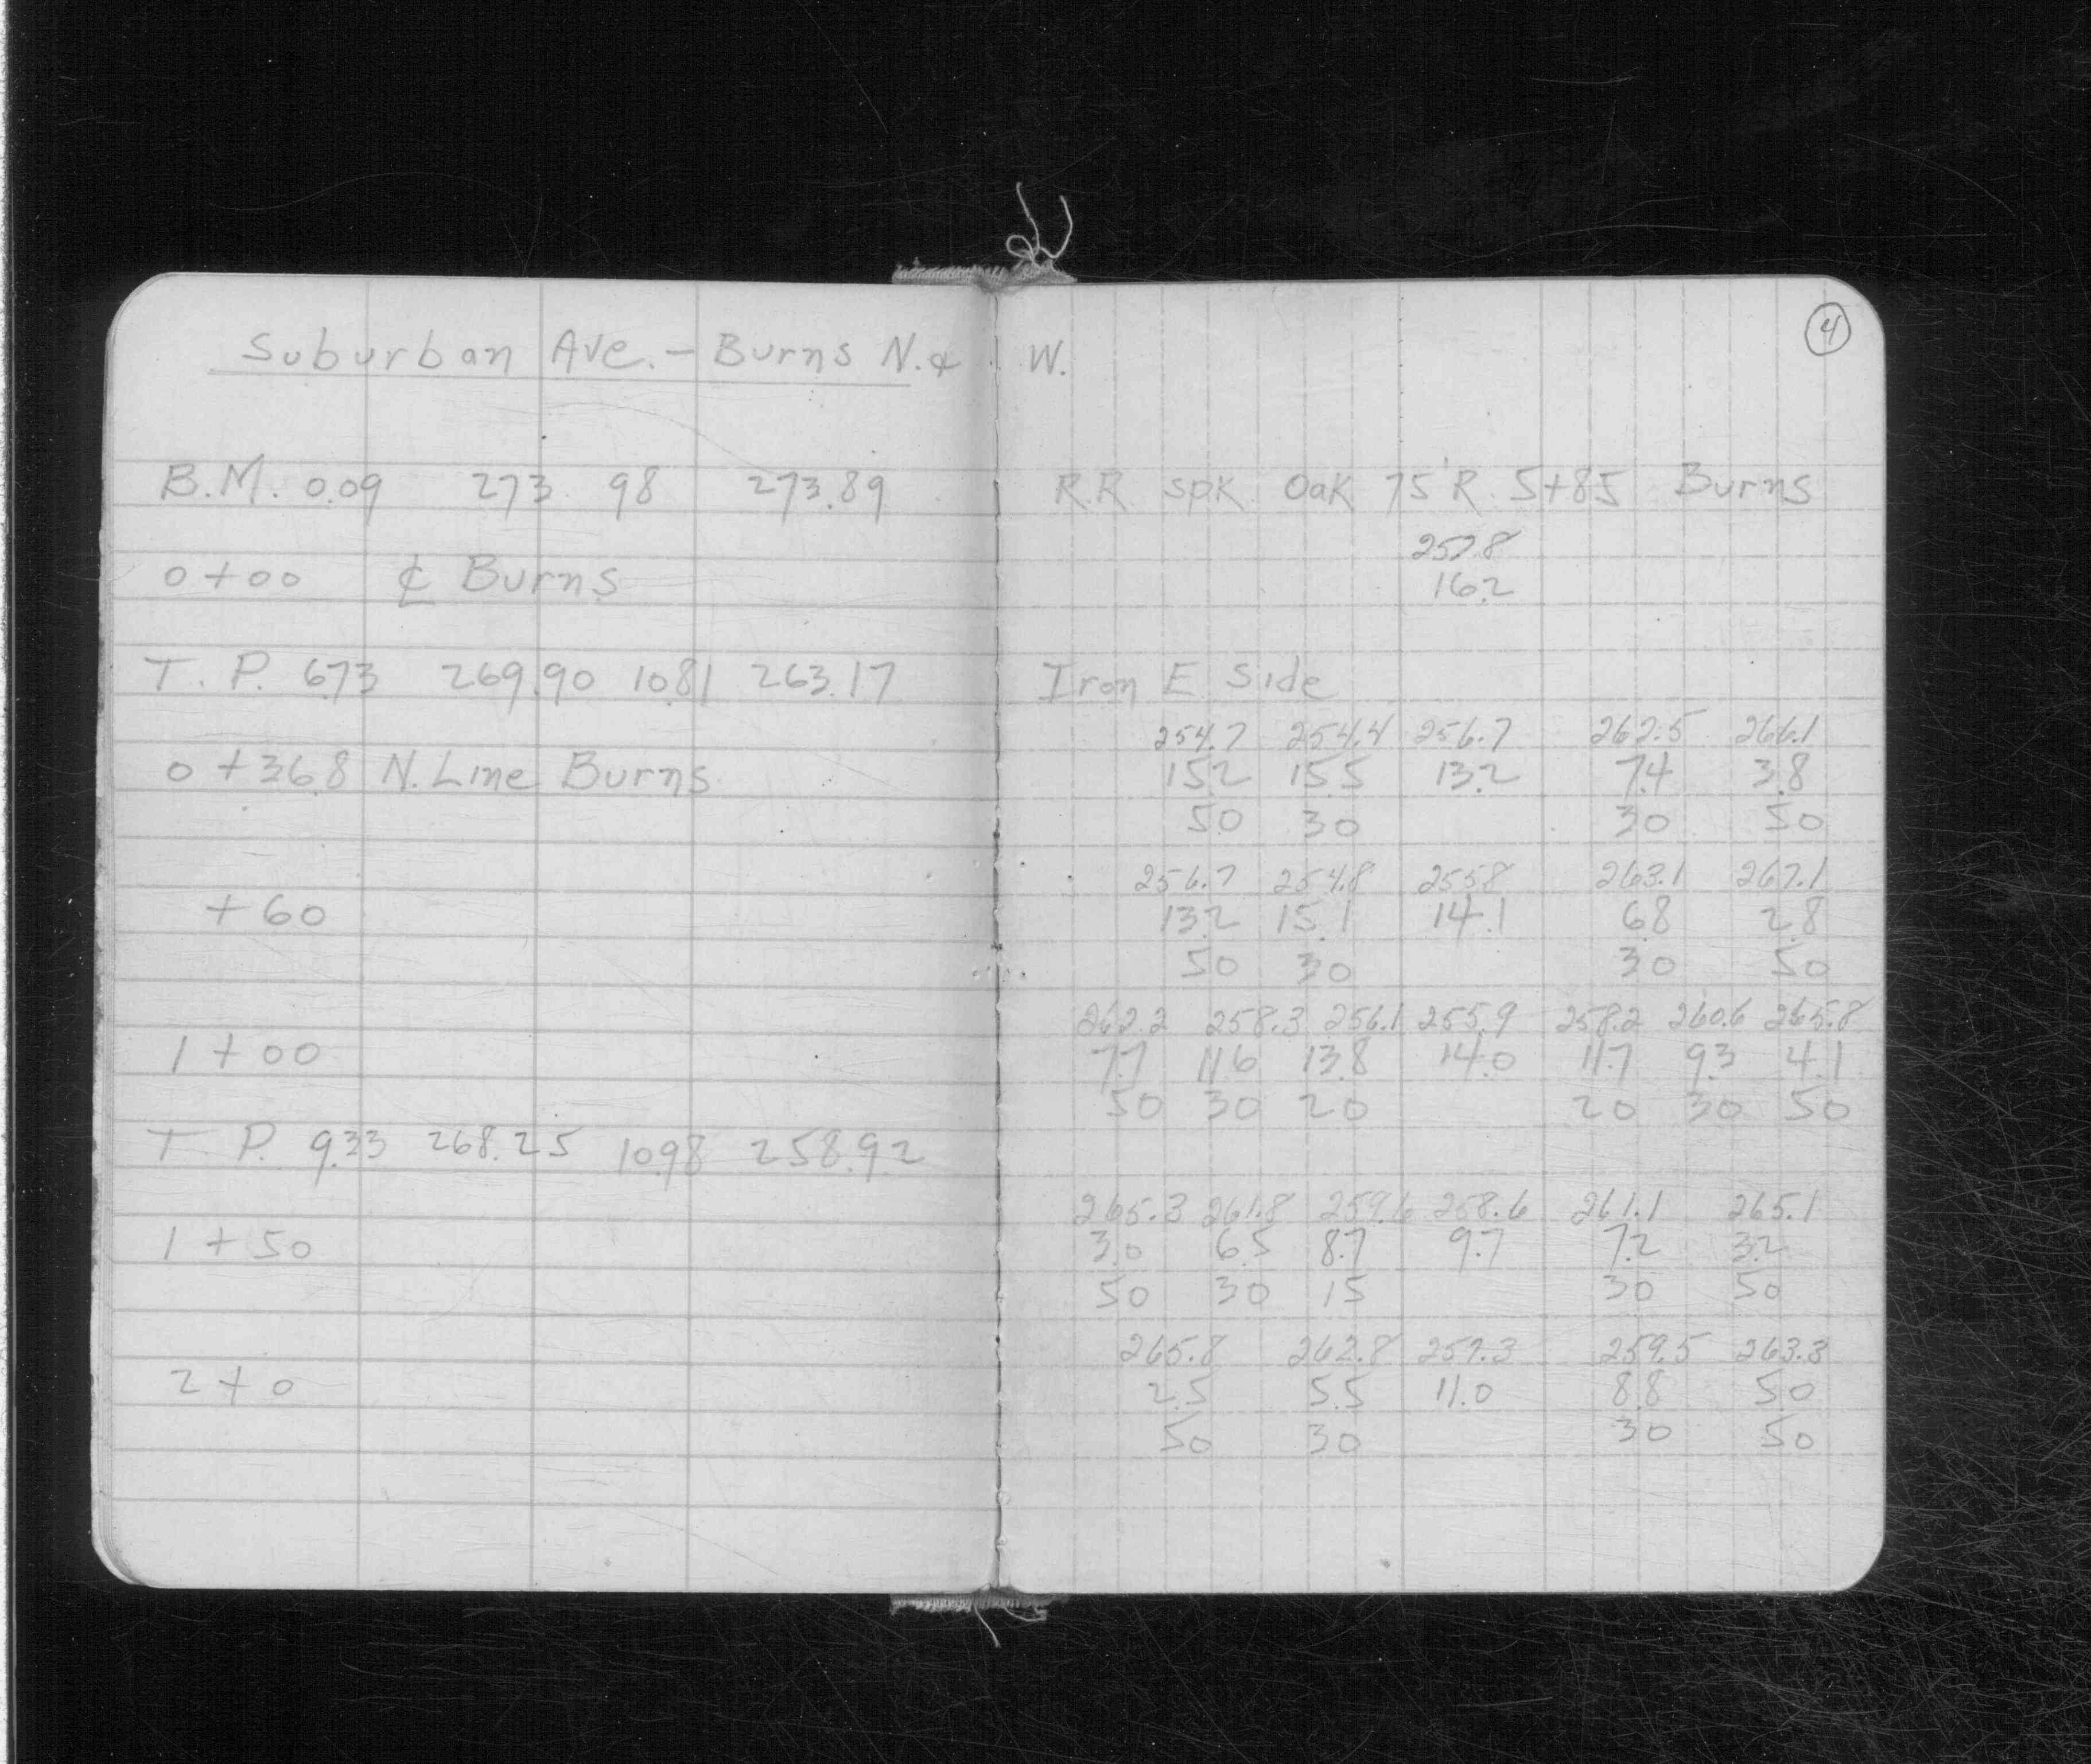 4
Suburban Ave. - Burns N. & W.
B.M. 0.09 273.98 273.89 R.R. spk Oak 75'R 5+85 Burns
257.8
0+00 ℄ Burns 16.2
T.P. 6.73 269.90 10.81 263.17 Iron E Side
254.7 254.4 256.7 262.5 266.1
0+36.8 N. Line Burns 15.2 15.5 13.2 7.4 3.8
50 30 30 50
256.7 254.8 255.8 263.1 267.1
+60 13.2 15.1 14.1 6.8 2.8
50 30 30 50
262.2 258.3 256.1 255.9 258.2 260.6 265.8
1+00 7.7 11.6 13.8 14.0 11.7 9.3 4.1
50 30 20 20 30 50
T.P. 9.33 268.25 10.98 258.92
265.3 261.8 259.6 258.6 261.1 265.1
1+50 3.0 6.5 8.7 9.7 7.2 3.2
50 30 15 30 50
265.8 262.8 257.3 259.5 263.3
2+0 2.5 5.5 11.0 8.8 5.0
50 30 30 50